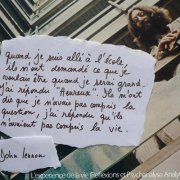 Quand je suis allé à l'école,
ils m'ont demandé ce que je
voulais être quand je serai grand.
J'ai répondu "Heureux". Ils m'ont
dit que je n'avais pas compris la
question, j'ai répondu qu'ils
n'avaient pas compris la vie.
John Lennon
L'expérience de la vie (Réflexions et Psychanalyse Analy